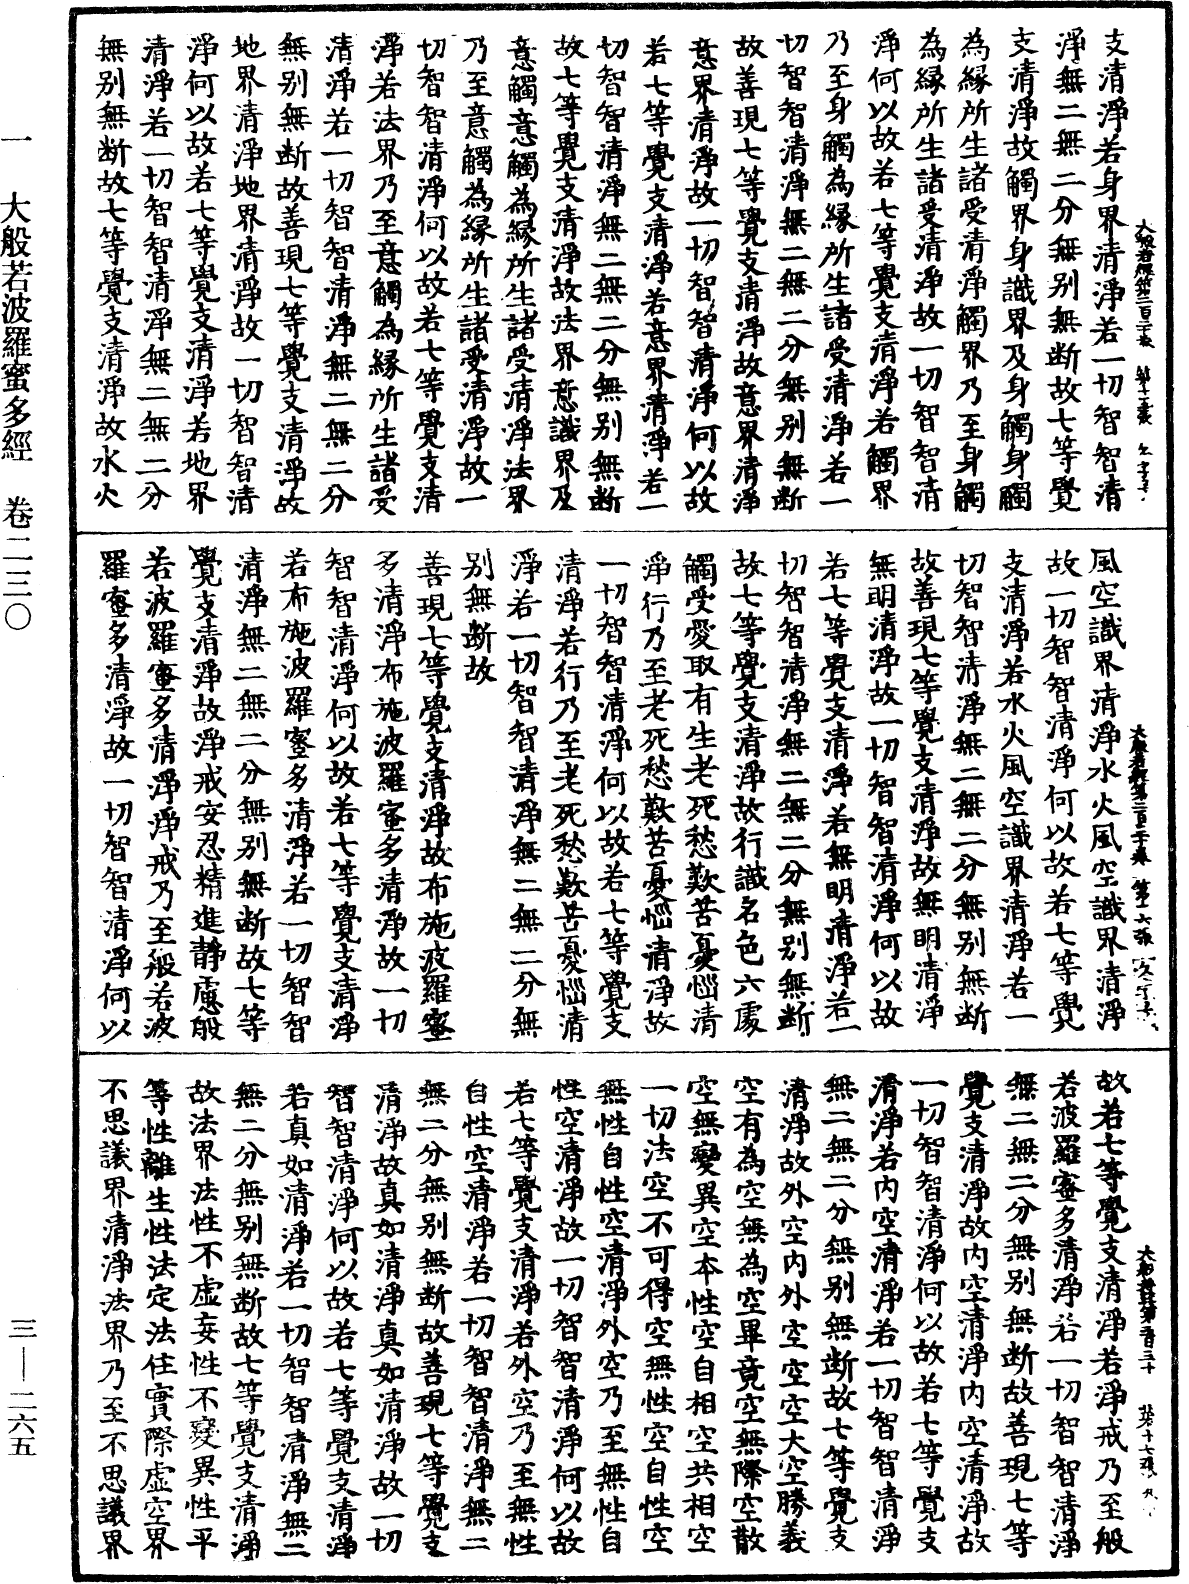 支清淨若身界清淨若一切智智清
淨無二無二分無别無断故七等覺
支清淨故觸界身識界及身觸身觸
為縁所生諸受清淨觸界乃至身觸
為縁所生諸受清淨故一切智智清
淨何以故若七等覺支清淨若觸界
乃至身觸為縁所生諸受清淨若一
切智智清淨無二無二分無别無断
故善現七等覺支清淨故意界清淨
意界清淨故一切智智清淨何以故
若七等覺支清淨若意界清淨若一
切智智清淨無二無二分無别無断
故七等覺支清淨故法界意識界及
意觸意觸為縁所生諸受清淨法界
乃至意觸為縁所生諸受清淨故一
切智智清淨何以故若七等覺支清
淨若法界乃至意觸為縁所生諸受
清淨若一切智智清淨無二無二分
無别無断故善現七等覺支清淨故
地界清淨地界清淨故一切智智清
淨何以故若七等覺支清淨若地界
清淨若一切智智清淨無二無二分
無别無断故七等覺支清淨故水火
風空識界清淨水火風空識界清淨
故一切智智清淨何以故若七等覺
支清淨若水火風空識界清淨若一
切智智清淨無二無二分無别無断
故善現七等覺支清淨故無明清淨
無明清淨故一切智智清淨何以故
若七等覺支清淨若無明清淨若一
切智智清淨無二無二分無别無断
故七等覺支清淨故行識名色六處
觸受愛取有生老死愁歎苦憂惱清
淨行乃至老死愁歎苦憂惱清淨故
一切智智清淨何以故若七等覺支
清淨若行乃至老死愁歎苦憂惱清
淨若一切智智清淨無二無二分無
别無断故
善現七等覺支清淨故布施波羅蜜
多清淨布施波羅蜜多清淨故一切
智智清淨何以故若七等覺支清淨
若布施波羅蜜多清淨若一切智智
清淨無二無二分無别無断故七等
覺支清淨故淨戒安忍精進靜慮般
若波羅蜜多清淨淨戒乃至般若波
羅蜜多清淨故一切智智清淨何以
故若七等覺支清淨若淨戒乃至般
若波羅蜜多清淨若一切智智清淨
無二無二分無别無断故善現七等
覺支清淨故内空清淨内空清淨故
一切智智清淨何以故若七等覺支
清淨若内空清淨若一切智智清淨
無二無二分無别無断故七等覺支
清淨故外空内外空空空大空勝義
空有為空無為空畢竟空無際空散
空無變異空本性空自相空共相空
一切法空不可得空無性空自性空
無性自性空清淨外空乃至無性自
性空清淨故一切智智清淨何以故
若七等覺支清淨若外空乃至無性
自性空清淨若一切智智清淨無二
無二分無别無断故善現七等覺支
清淨故真如清淨真如清淨故一切
智智清淨何以故若七等覺支清淨
若真如清淨若一切智智清淨無二
無二分無别無断故七等覺支清淨
故法界法性不虚妄性不變異性平
等性離生性法定法住實際虚空界
不思議界清淨法界乃至不思議界
一 大般若波羅蜜多經 卷二三〇
三—二六五